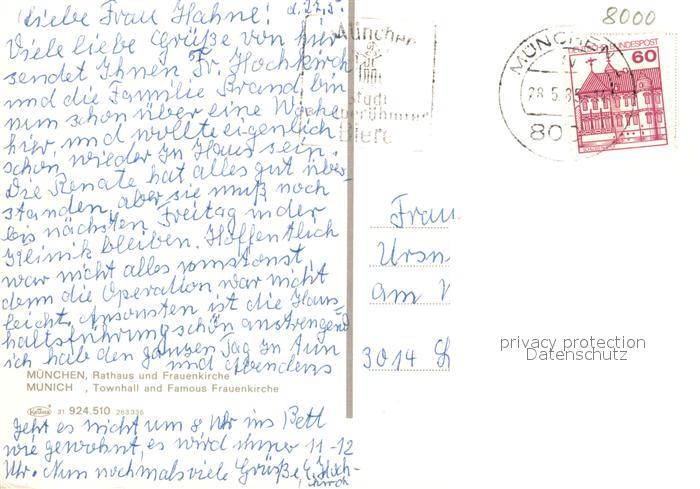 Liebe Frau Hahne! d. 27.5.
Viele liebe Grüße von hier
sendet Ihnen Fr. Hochkirch
und die Familie Brand, bin
nun schon über eine Woche
hier, und wollte eigenlich
schon wieder zu Haus sein.
Die Renate hat alles gut über-
standen, aber sie muß noch
bis nächsten Freitag in der
Klinik bleiben. Hoffentlich
war nicht alles umstonst,
denn die Operation war nicht
leicht. Ansonsten ist die Haus-
haltsführung schön anstrengend
ich hab den ganzen Tag zu tun
und abendens
MÜNCHEN, Rathaus und Frauenkirche
MUNICH , Townhall and Famous Frauenkirche
Krüger 31 924.510 283336
geht es nicht um 8 Uhr ins Bett
wie gewohnt, es wird immer 11-12
Uhr. Nun nochmals viele Grüße E. Hoch-
kirch
8000
München
Stadt
berühmter
Biere
MÜNCHEN
28.5.85
80
DEUTSCHE BUNDESPOST
60
Frau
am
3014
privacy protection
Datenschutz